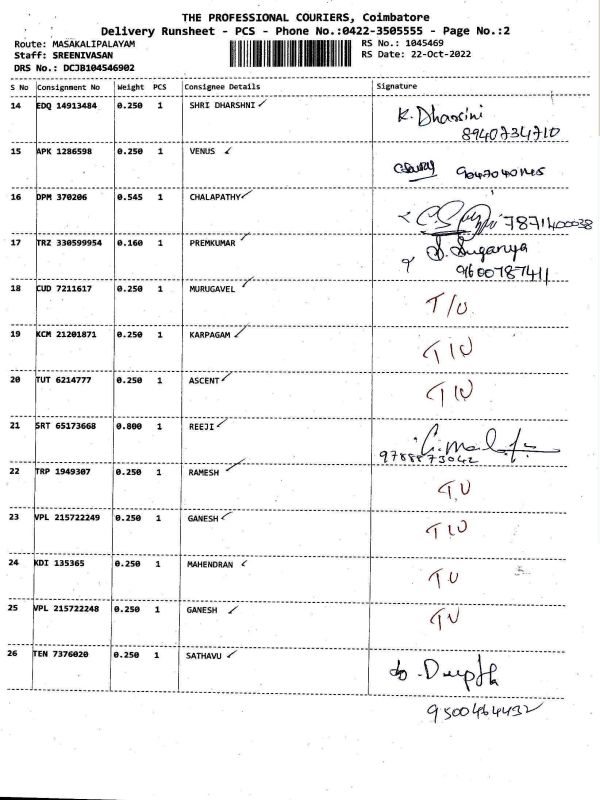 THE PROFESSIONAL COURIERS, Coimbatore
Delivery Runsheet - PCS - Phone No.:0422-3505555 - Page No.:2
Route: MASAKALIPALAYAM
Staff: SREENIVASAN
DRS No.: DCJB104546902
RS No.: 1045469
RS Date: 22-Oct-2022
S No Consignment No Weight PCS Consignee Details Signature
14 EDQ 14913484 0.250 1 SHRI DHARSHNI K. Dharsini
8940734710
15 APK 1286598 0.250 1 VENUS 9047040145
16 DPM 370206 0.545 1 CHALAPATHY 7871400038
17 TRZ 330599954 0.160 1 PREMKUMAR S. Suganya
9600787411
18 CUD 7211617 0.250 1 MURUGAVEL T/U
19 KCM 21201871 0.250 1 KARPAGAM T/U
20 TUT 6214777 0.250 1 ASCENT T/U
21 SRT 65173668 0.800 1 REEJI
9788873042
22 TRP 1949307 0.250 1 RAMESH T.U
23 VPL 215722249 0.250 1 GANESH T/U
24 KDI 135365 0.250 1 MAHENDRAN TU
25 VPL 215722248 0.250 1 GANESH TU
26 TEN 7376020 0.250 1 SATHAVU Deepth
9500464492